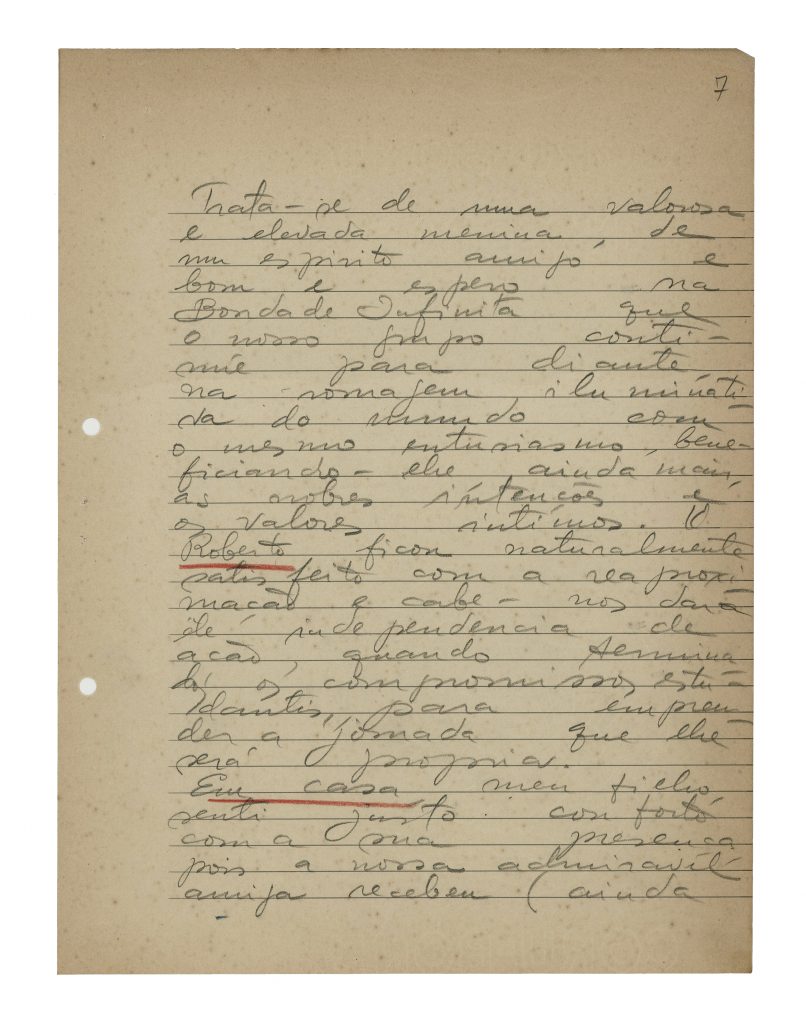 7
Trata-se de uma valorosa
e elevada menina, de
um espirito amigo, e
bom e espero na
Bondade Infinita que
o nosso grupo conti-
núe para diante
na romagem iluminati
va do mundo com
o mesmo entusiasmo, bene-
ficiando-lhe ainda mais,
as nobres intenções e
os valores intimos. O
Roberto ficou naturalmente
satisfeito com a reaproxi
mação e cabe-nos dar á
ele independencia de
acão, quando termina
os compromissos estu-
dantis, para empreen
der a jornada que lhe
será propria.
Em casa meu filho,
senti justo conforto
com a sua presença
pois a nossa admiravel
amiga recebeu (ainda